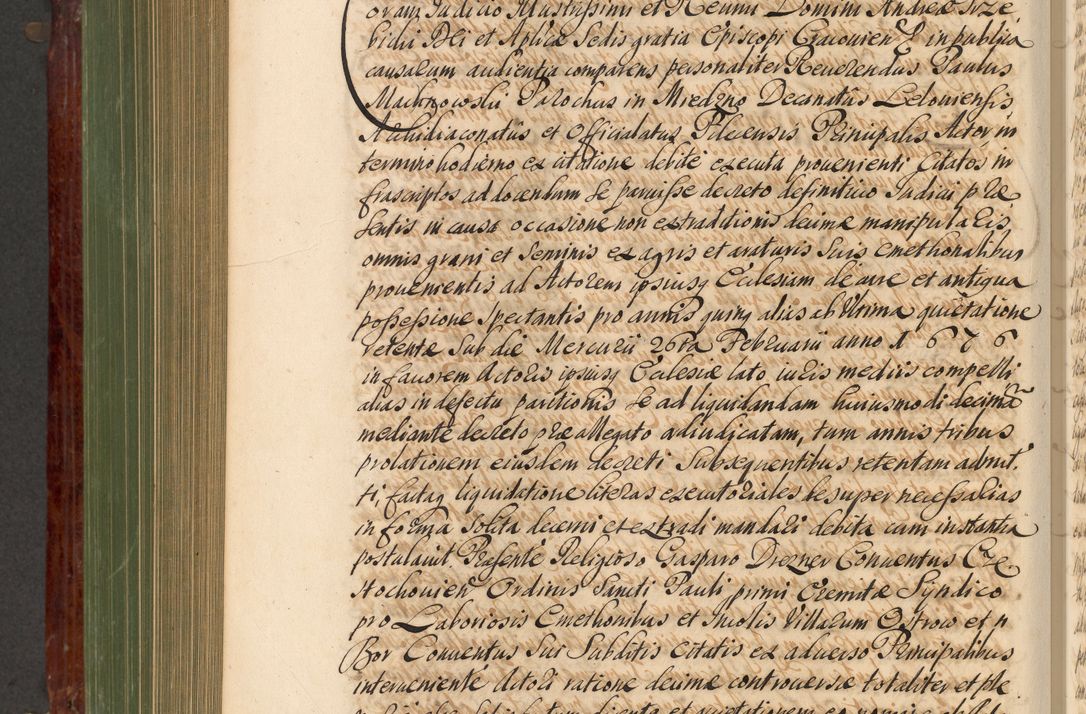 oram Judicio Illustrissimi et Reverendi Domini Andreæ Trze
bicki Dei et Aplicæ Sedis gratia Episcopi Cracovien & in publica
causarum audientia comparens personaliter Reverendus Paulus
Machnowski Parochus in Miedzno Decanatûs Leloviensis
Archidiaconatûs et Officialatus Pilecensis Principalis Actor in
termino hodierno ex citatione debité executa provenienti Citatos in
frascriptos ad docendum se paruisse decreto definitivo Judicij præ
sentis in causa occasione non extraditionis decimæ manipularis
omnis grani et seminis ex agris et araturis suis Cmethonalibus
provenientis ad Actorem ipsiusq Ecclesiam de iure et antiqua
possessione spectantis pro annis quinq alias ab ultima quietatione
retentæ sub die Mercurii 26ta Februarii anno 1676
in favorem Actoris ipsiusq Ecclesiæ lato iuris mediis compelli
alias in defectu paritionis se ad liquidandam huiusmodi decimã
mediante decreto præallegato adiudicatam, tum annis tribus
prolationem eiusdem decreti subsequentibus retentam admit
ti, factaq liquidatione literas executoriales desuper necessarias
in forma solita decerni et extradi mandari debita cum instantia
postulavit Præsente Religioso Gasparo Drezner Conventus Cze
stochovien Ordinis Sancti Pauli primi Eremitæ Syndico
pro Laboriosis Cmethonibus et Incolis Villarum Ostrow et n
Bor Conventus sui Subditis Citatis ex adverso Principalibus
interveniente Actori ratione decimæ controversæ totaliter et ple